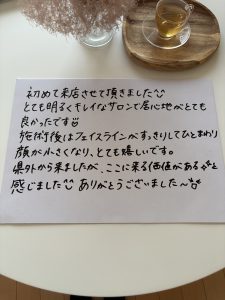 初めて来店させて頂きました
とても明るくキレイなサロンで居心地がとても
良かったです
施術後はフェイスラインがすっきりしてひとまわり
顔が小さくなり、とても嬉しいです。
県外から来ましたが、ここに来る価値があると
感じました ありがとうございました〜